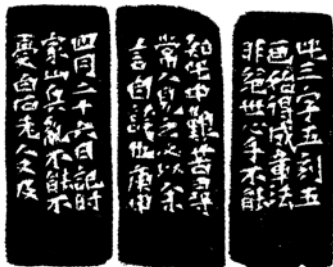 此三字五刻五
画始得成章法
非絕世心手不能
知此中艱苦尋
常人見之必以余
言自誇也庚申
四月二十六日記時
家山兵亂不能不
憂白石老人又及